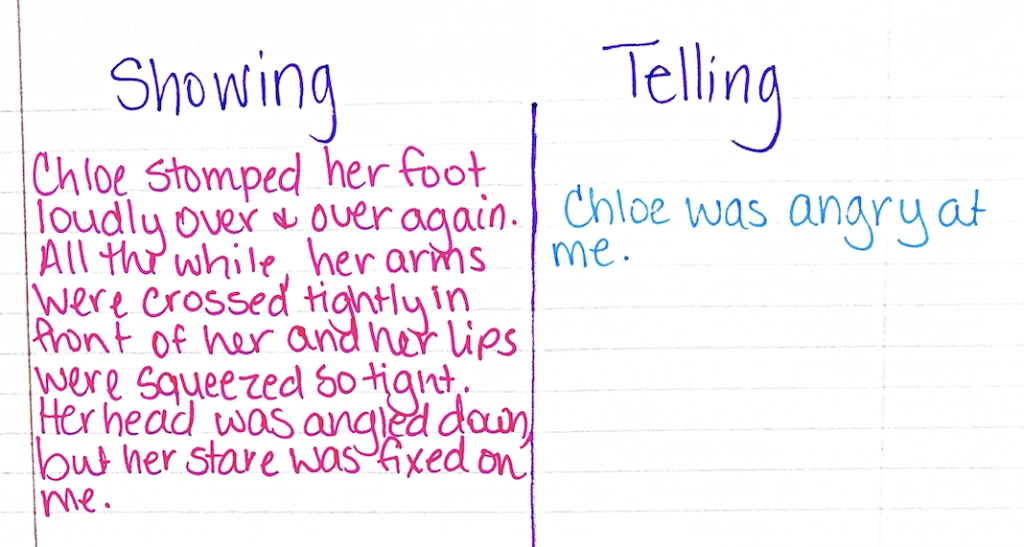 Showing
Chloe stomped her foot
loudly over & over again.
All the while, her arms
were crossed tightly in
front of her and her lips
were squeezed so tight.
Her head was angled down,
but her stare was fixed on
me.
Telling
Chloe was angry at
me.